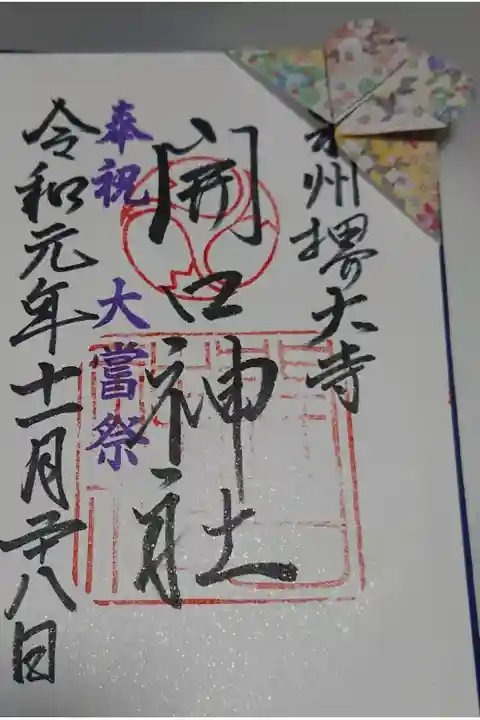 州堺大寺
開口神社
奉祝 大嘗祭
令和元年十一月二十八日